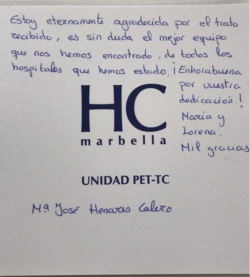 Estoy eternamente agradecida por el trato
recibido, es sin duda el mejor equipo
que nos hemos encontrado, de todos los
hospitales que hemos estado. ¡Enhorabuena
por vuestra
dedicación!
María y
Lorena.
Mil gracias
HC
marbella
UNIDAD PET-TC
Mª José Henares Calero